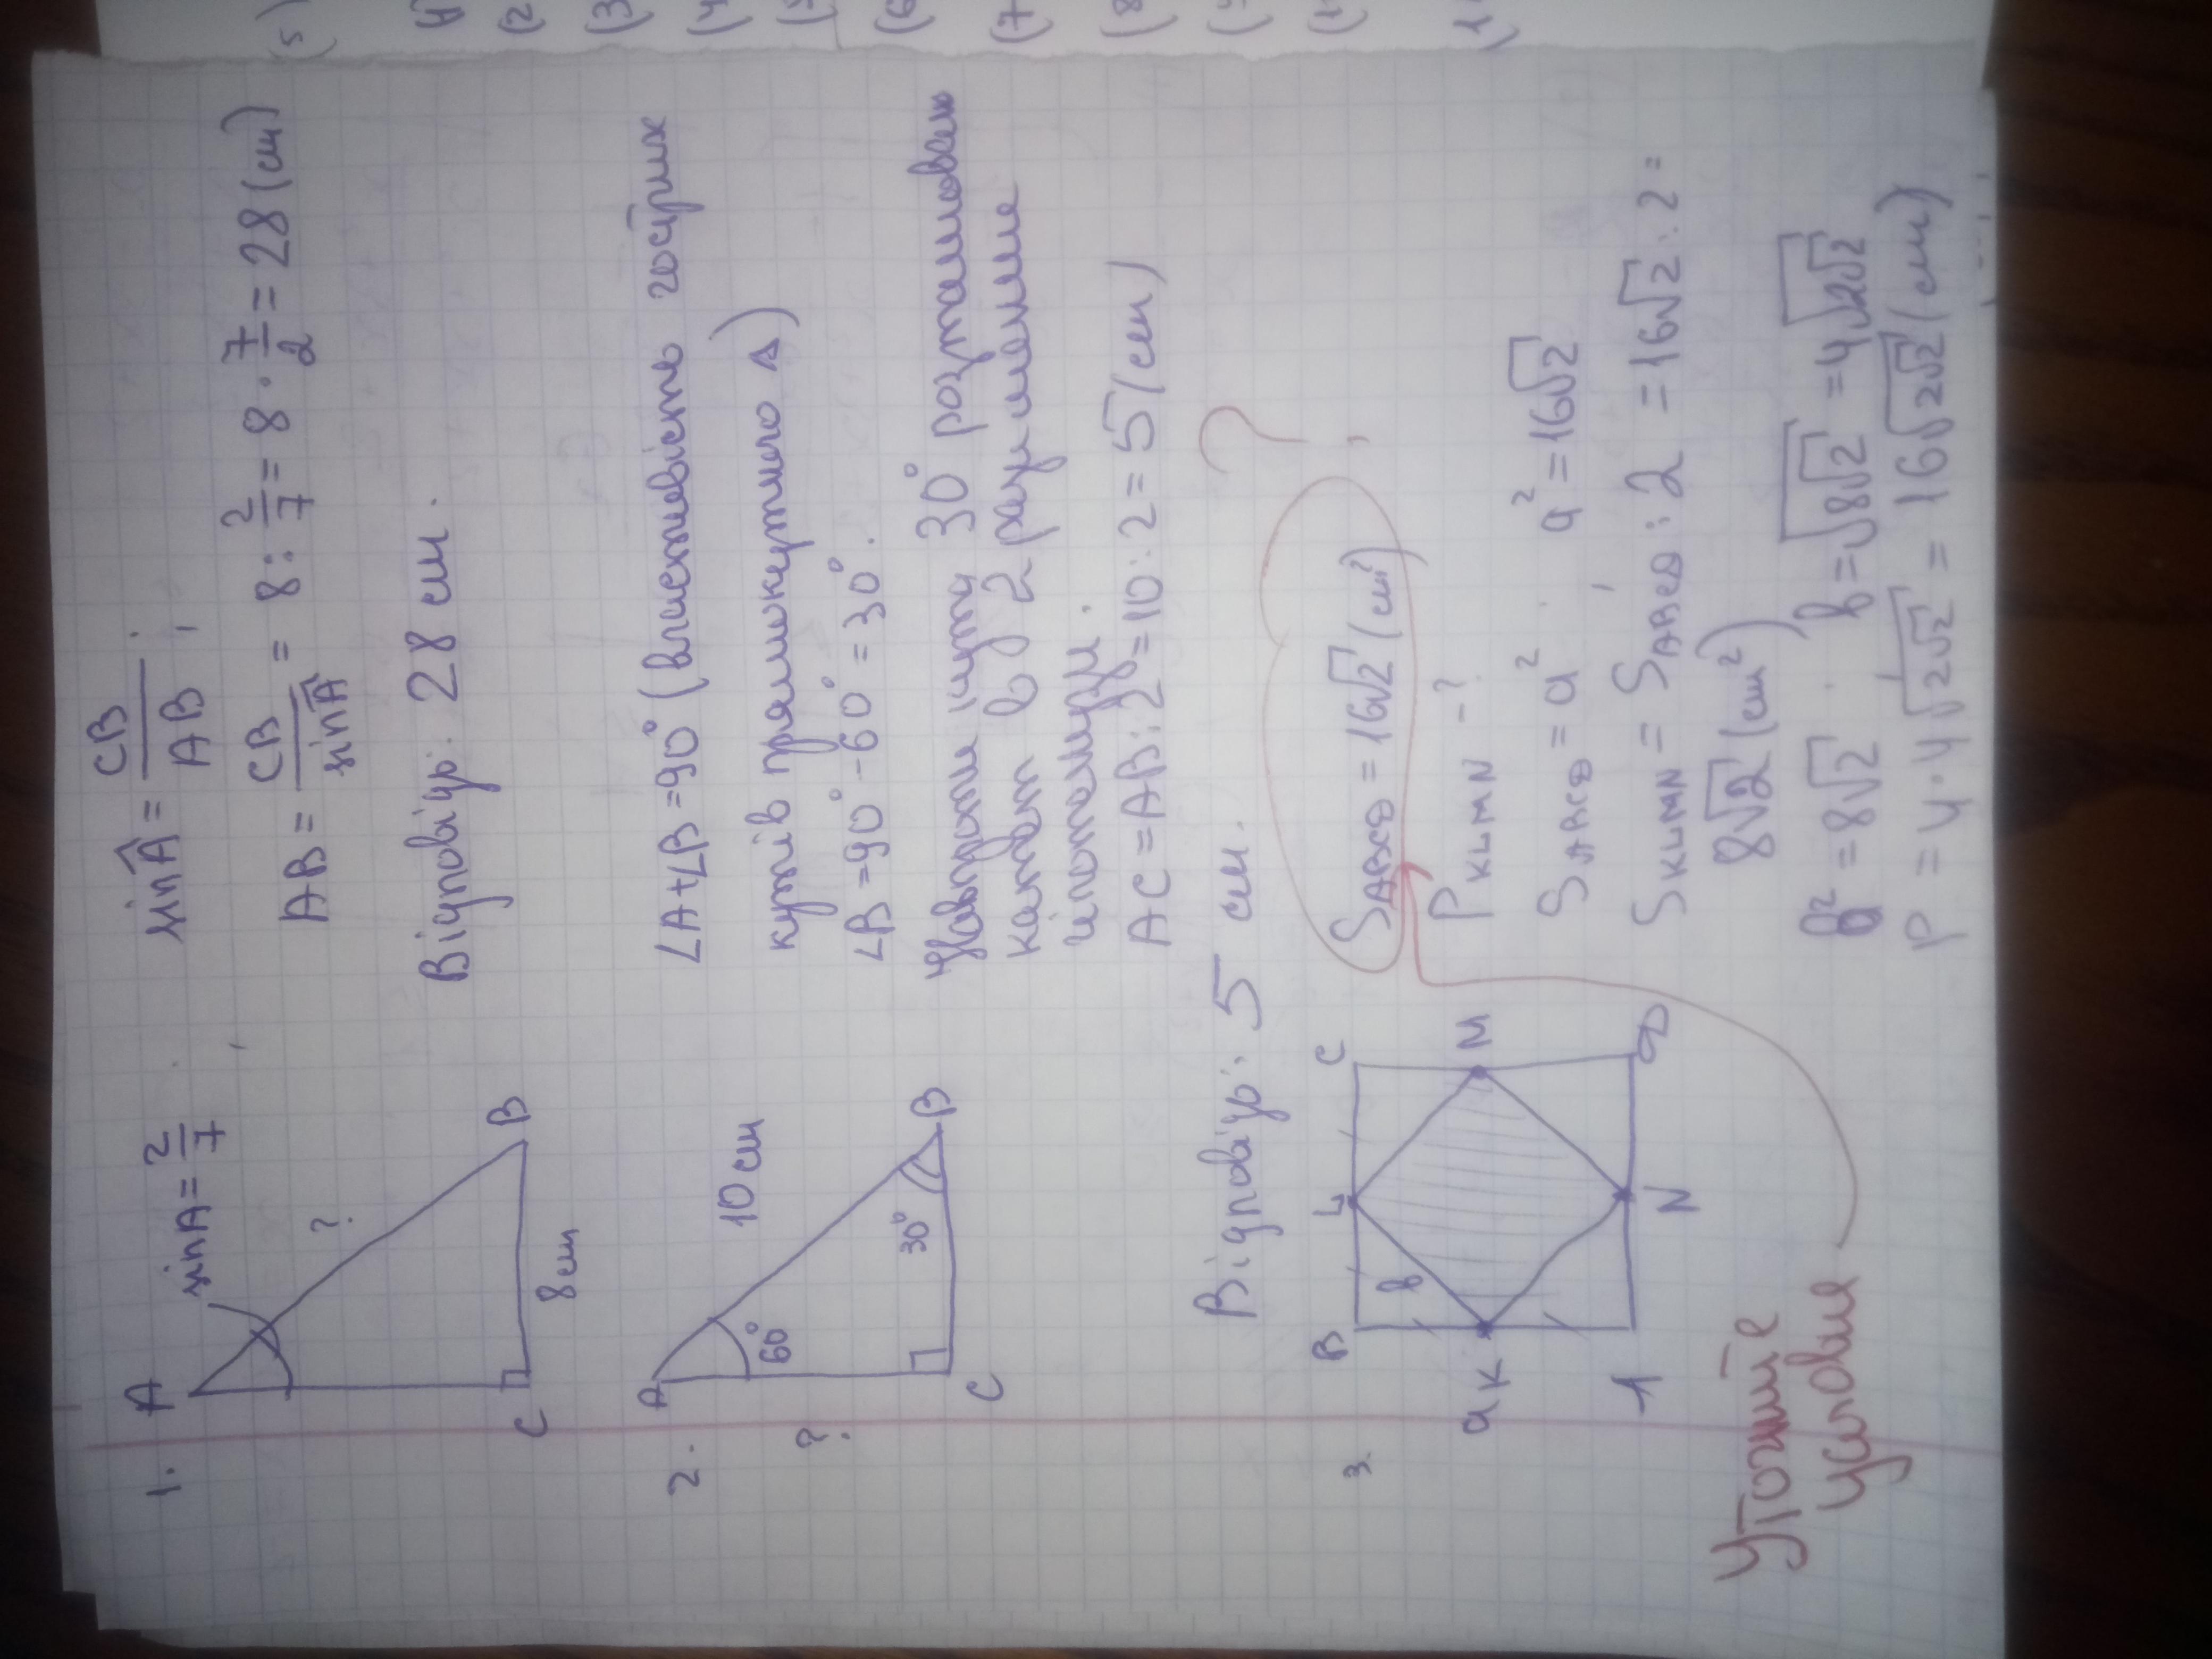 1.
A
sinA = 2/7
?
C
8 см
B
sinÂ = CB/AB ;
AB = CB/sinÂ = 8 : 2/7 = 8 · 7/2 = 28 (см)
Відповідь: 28 см.
2.
A
60°
10 см
?
30°
C
B
∠A+∠B=90° (властивість гострих
кутів прямокутного Δ)
∠B=90°-60°=30°.
Навпроти кута 30° розташован
катет в 2 рази менше
гіпотенузи.
AC = AB:2=10:2=5(см)
Відповідь: 5 см.
3.
B
L
C
в
а
K
M
A
N
D
S ABCD = 16√2 (см²)
?
P KLMN - ?
S ABCD = a² a² = 16√2
S KLMN = S ABCD : 2 = 16√2 : 2 =
8√2 (см²)
в² = 8√2 в = √8√2 = 4√2√2
P = 4·4√2√2 = 16√2√2 (см)
Уточните
условие
(5
(2
(3
(4
(6
(7
(8